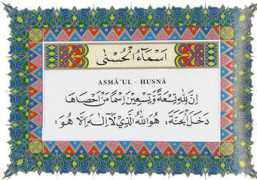 اَسْمَاءُ الْحُسْنٰى
ASMÂ'UL - HUSNÂ
اِنَّ لِلّٰهِ تِسْعَةً وَتِسْعِينَ اِسْمًا مَنْ اَحْصَاهَا
دَخَلَ الْجَنَّةَ، هُوَ اللهُ الَّذِي لَا اِلٰهَ اِلَّا هُوَ